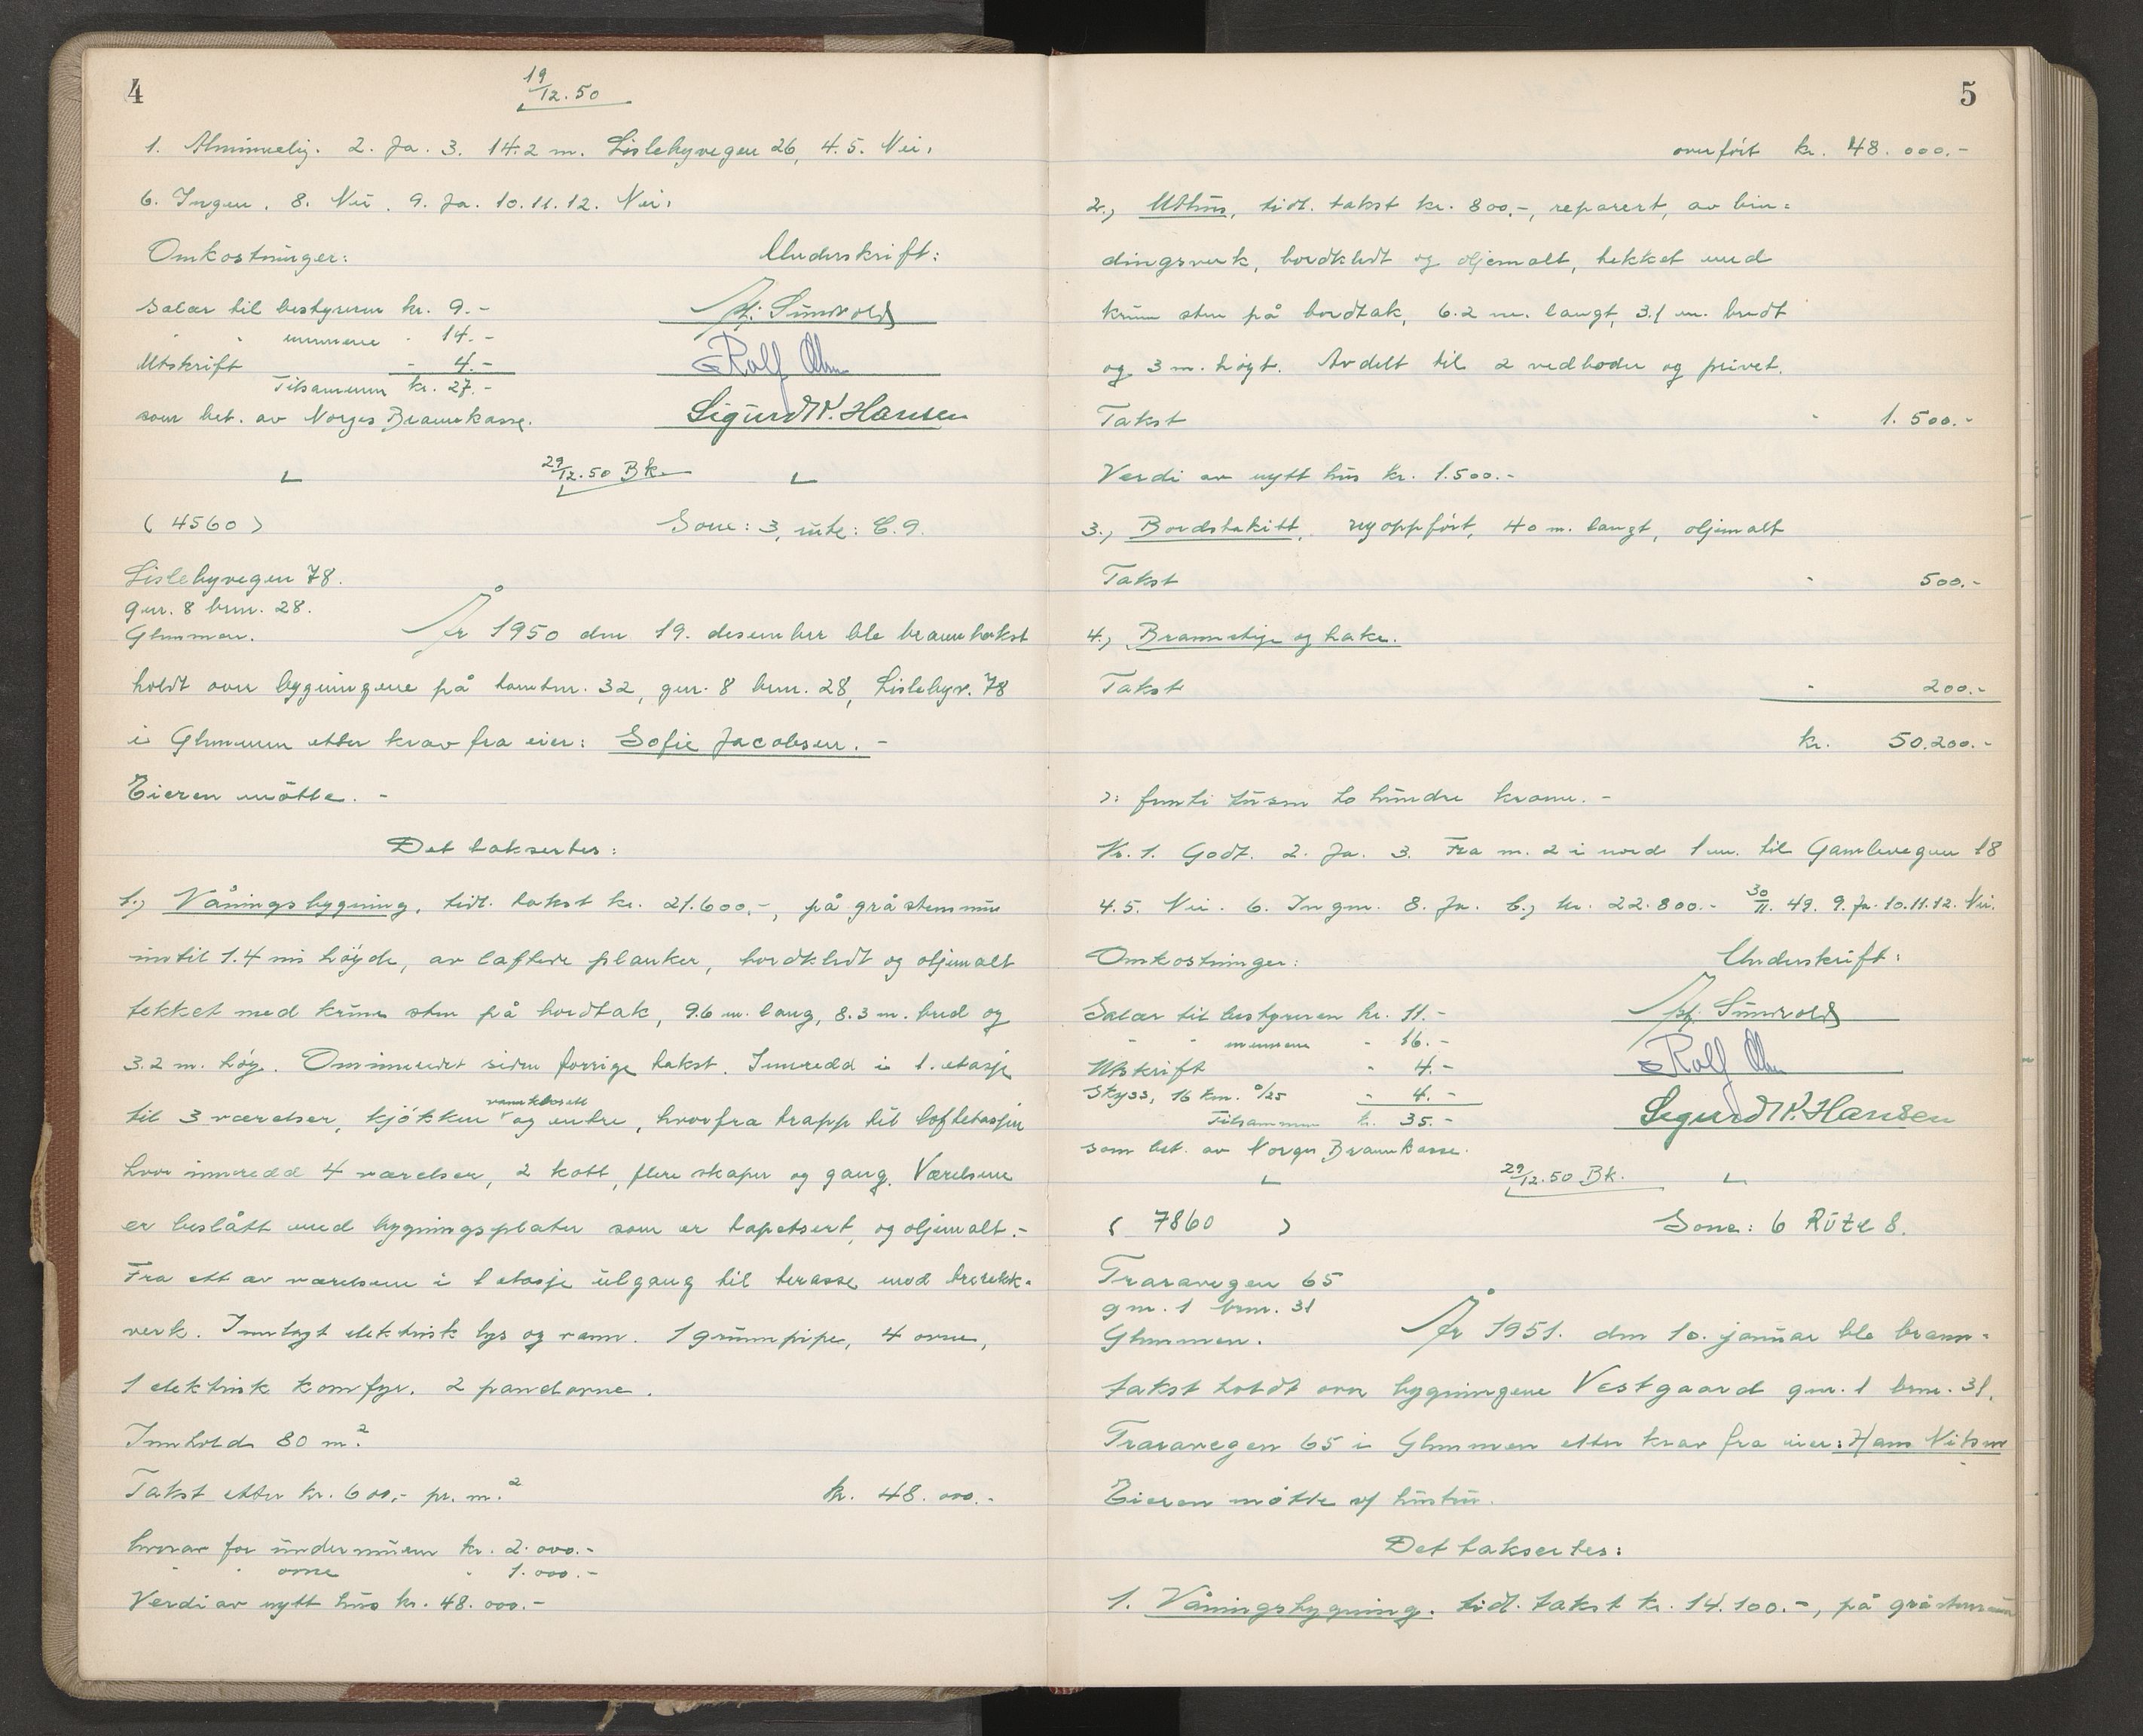 4
19/12.50
1. Alminnelig. 2. Ja. 3. 14.2 m. Lislebyvegen 26, 4.5. Nei.
6. Ingen. 8. Nei. 9. Ja. 10.11.12. Nei.
Omkostninger:
Underskrift:
Salær til bestyreren kr. 9.-
" " mennene " 14.-
Utskrift - 4.-
Tilsammen kr. 27.-
som bet. av Norges Brannkasse.
Sundvold
Rolf
Sigurd Hansen
29/12.50 Bk.
(4560)
Sone: 3, rute: C.9.
Lislebyvegen 78.
gnr. 8 bnr. 28.
Glemmen.
År 1950 den 19. desember ble branntakst
holdt over bygningene på tomtnr. 32, gnr. 8 bnr. 28, Lislebyv. 78
i Glemmen etter krav fra eier: Sofie Jacobsen. -
Eieren møtte. -
Det taksertes:
1., Våningsbygning, tidl. takst kr. 21.600.-, på gråstensmur
inntil 1.4 m høyde, av laftede planker, bordkledt og oljemalt
tekket med krum sten på bordtak, 9.6 m. lang, 8.3 m. bred og
3.2 m. høy. Ominnredet siden forrige takst. Innredd i 1. etasje
til 3 værelser, kjøkken vannklosett og entre, hvorfra trapp til loftetasjen
hvor innredd 4 værelser, 2 kott, flere skaper og gang. Værelsene
er beslått med bygningsplater som er tapetsert, og oljemalt.-
Fra ett av værelsene i 1 etasje utgang til terasse med trerekk-
verk. Innlagt elektrisk lys og vann. 1 grunnpipe, 4 ovne,
1 elektrisk komfyr. 2 panelovne.
Innhold 80 m.²
Takst etter kr. 600,- pr. m.² kr. 48.000.-
hvorav for undermuren kr. 2.000.-
" " ovne " 1.000.-
Verdi av nytt hus kr. 48.000.-
5
overført kr. 48.000.-
2., Uthus, tidl. takst kr. 800.-, reparert, av bin-
dingsverk, bordkledt og oljemalt, tekket med
krum sten på bordtak, 6.2 m. langt, 3.1 m. bredt
og 3 m. høgt. Avdelt til 2 vedboder og privet.
Takst " 1.500.-
Verdi av nytt hus kr. 1.500.-
3., Bordstakitt, nyoppført, 40 m. langt, oljemalt
Takst " 500.-
4., Brannstige og hake.
Takst " 200.-
kr. 50.200.-
: femti tusen to hundre kroner. -
Kr. 1. Godt. 2. Ja. 3. Fra m. 2 i nord 1 m. til Gamlevegen 18
4.5. Nei. 6. Ingen. 8. Ja. b., kr. 22.800.- 30/11. 49. 9. Ja. 10.11.12. Nei.
Omkostninger:
Underskrift:
Salær til bestyreren kr. 11.-
" " mennene " 16.-
Utskrift " 4.-
Skyss, 16 km. à /25 - 4.-
Tilsammen kr. 35.-
som bet. av Norges Brannkasse.
Sundvold
Rolf
Sigurd Hansen
29/12.50 Bk.
( 7860 )
Sone: 6 Rute 8.
Traravegen 65
gnr. 1 bnr. 31
Glemmen.
År 1951. den 10. januar ble brann-
takst holdt over bygningene Vestgaard gnr. 1 bnr. 31.
Traravegen 65 i Glemmen etter krav fra eier: Hans Nilsen
Eieren møtte v/ hustru.
Det taksertes:
1. Våningsbygning. tidl. takst kr. 14.100.-, på gråstensmur